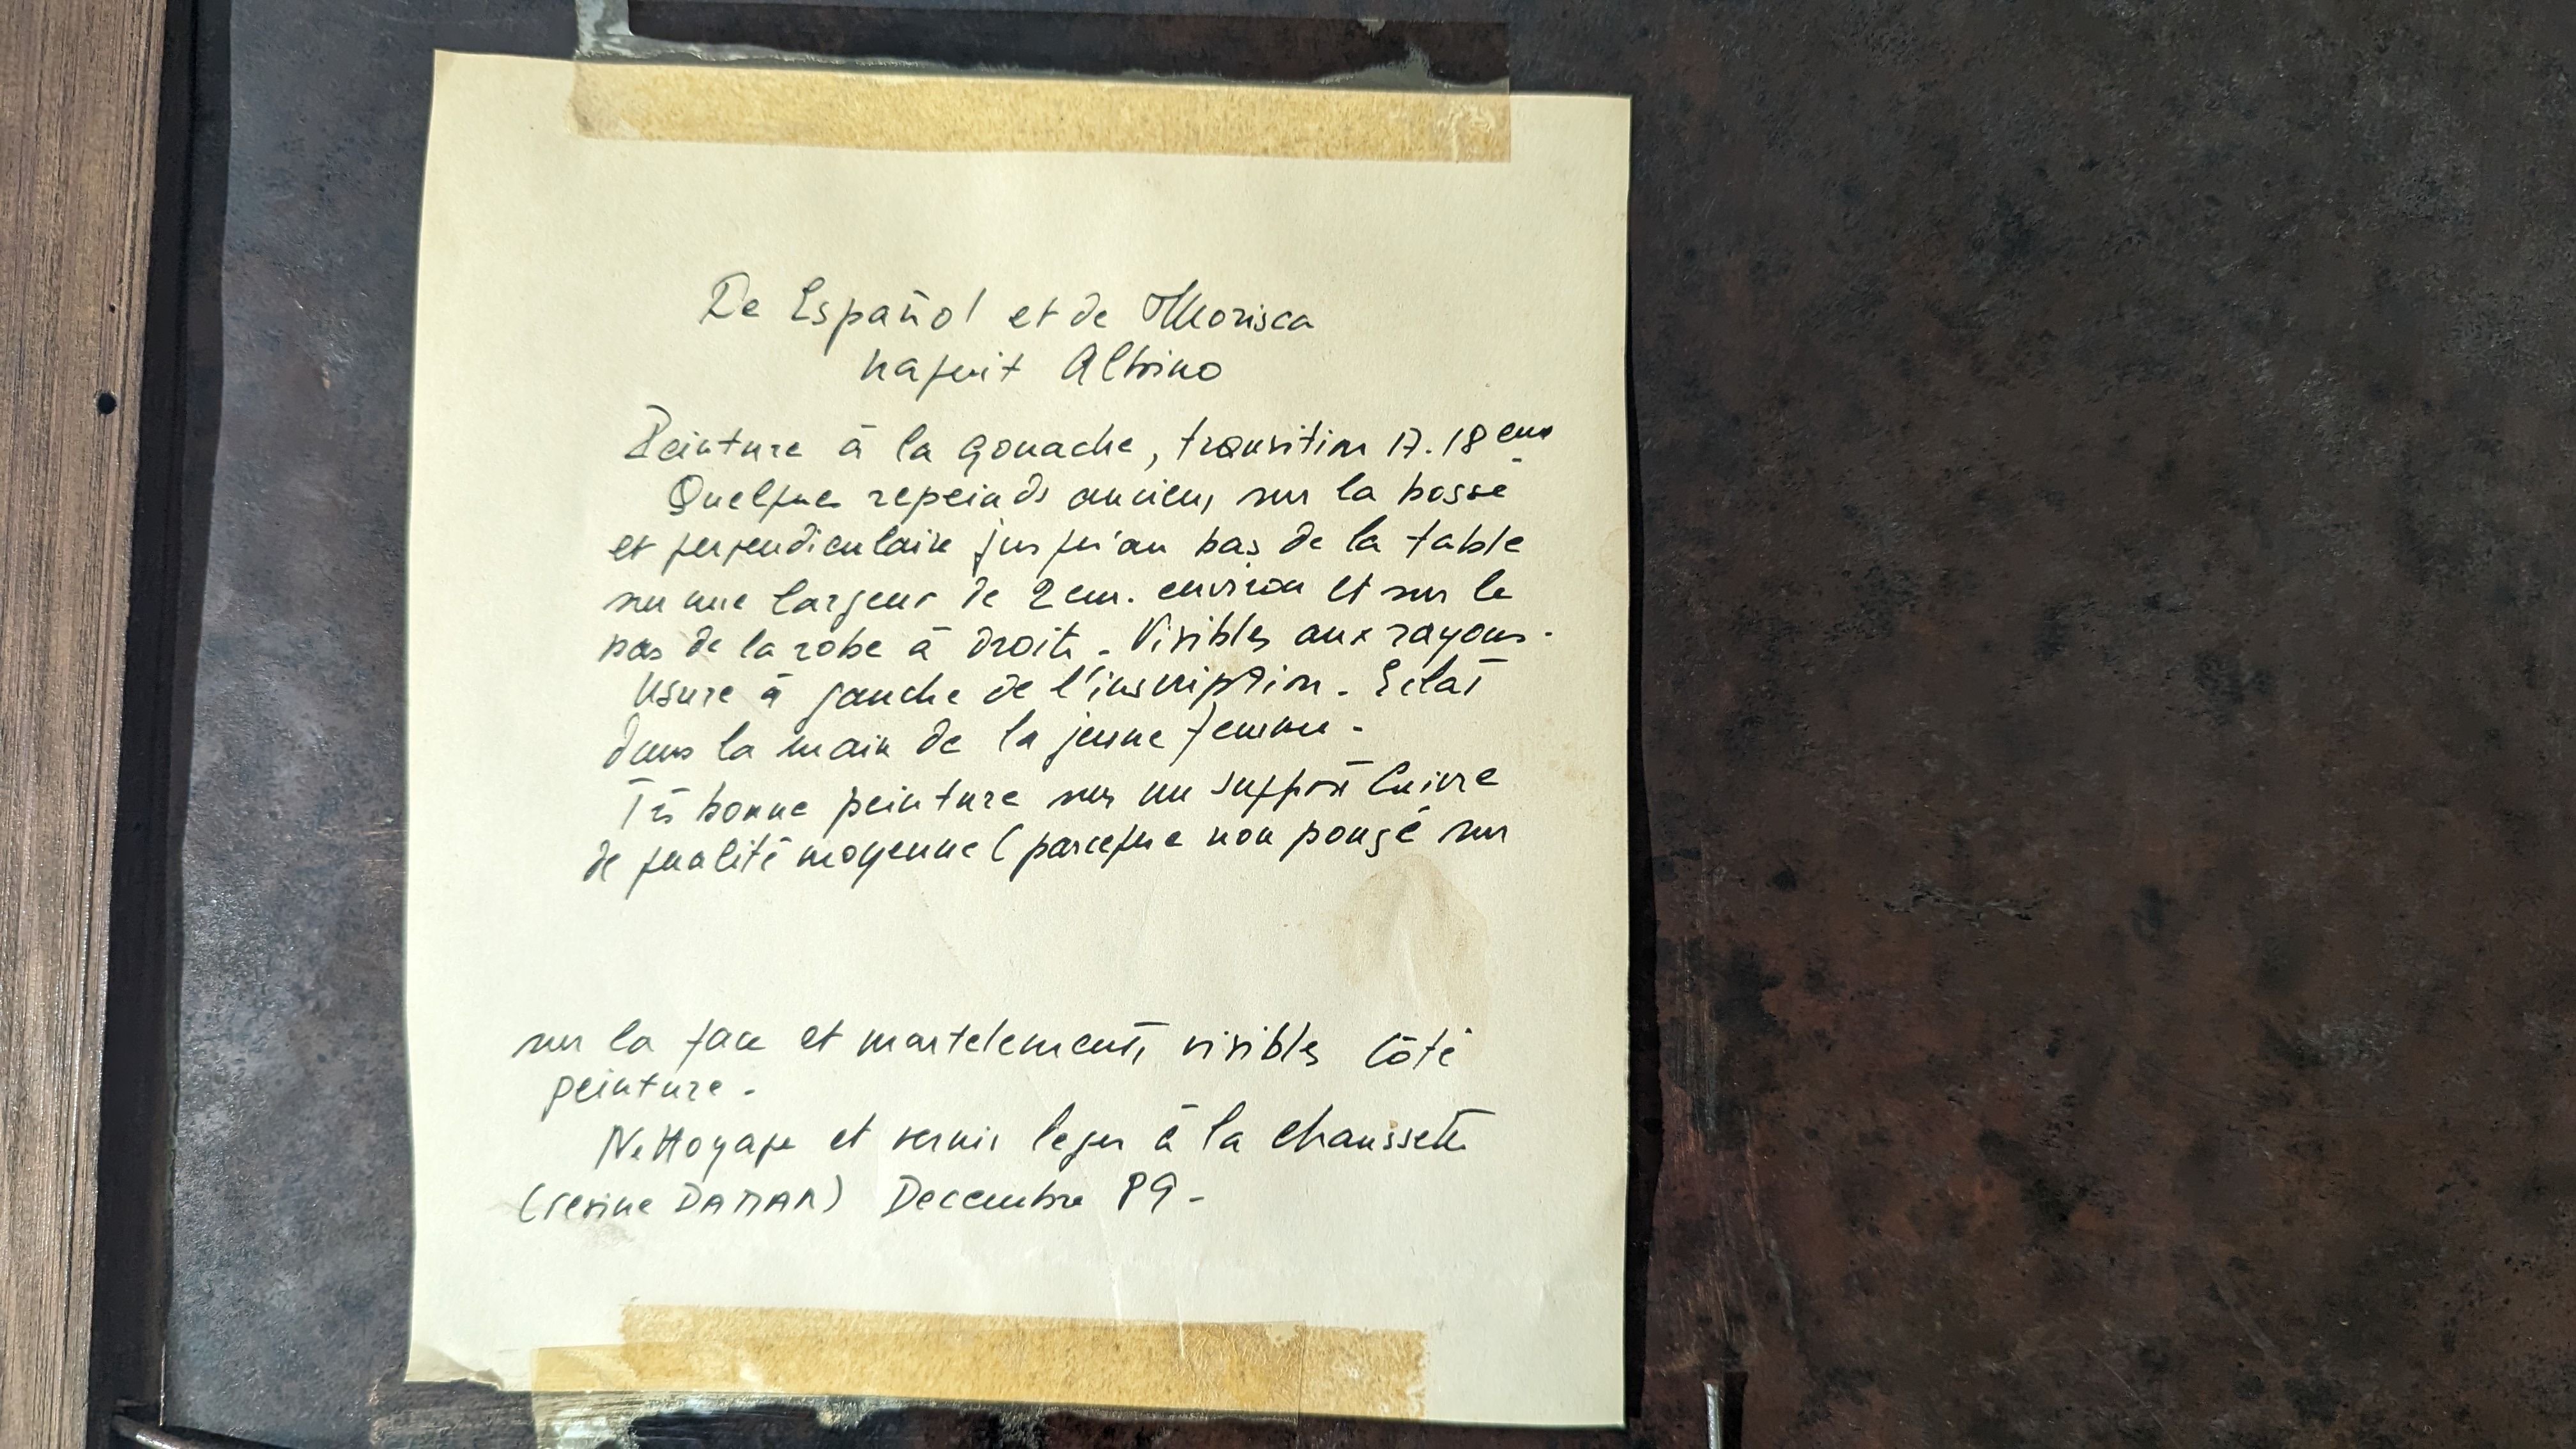 De Español et de Morisca
naquit Albino
Peinture à la gouache, transition 17.18 eme
Quelques repeinds anciens sur la bosse
et perpendiculaire jusqu'au bas de la table
sur une largeur de 2 cm. environ et sur le
bas de la robe à droite - Visibles aux rayons -
Usure à gauche de l'inscription - Eclat
dans la main de la jeune femme -
Très bonne peinture sur un support Cuivre
de qualité moyenne (parceque non ponçé sur
sur la face et martelements visibles Côté
peinture -
Nettoyage et vernis leger à la chaussette
(resine DAMAR) Decembre 89 -